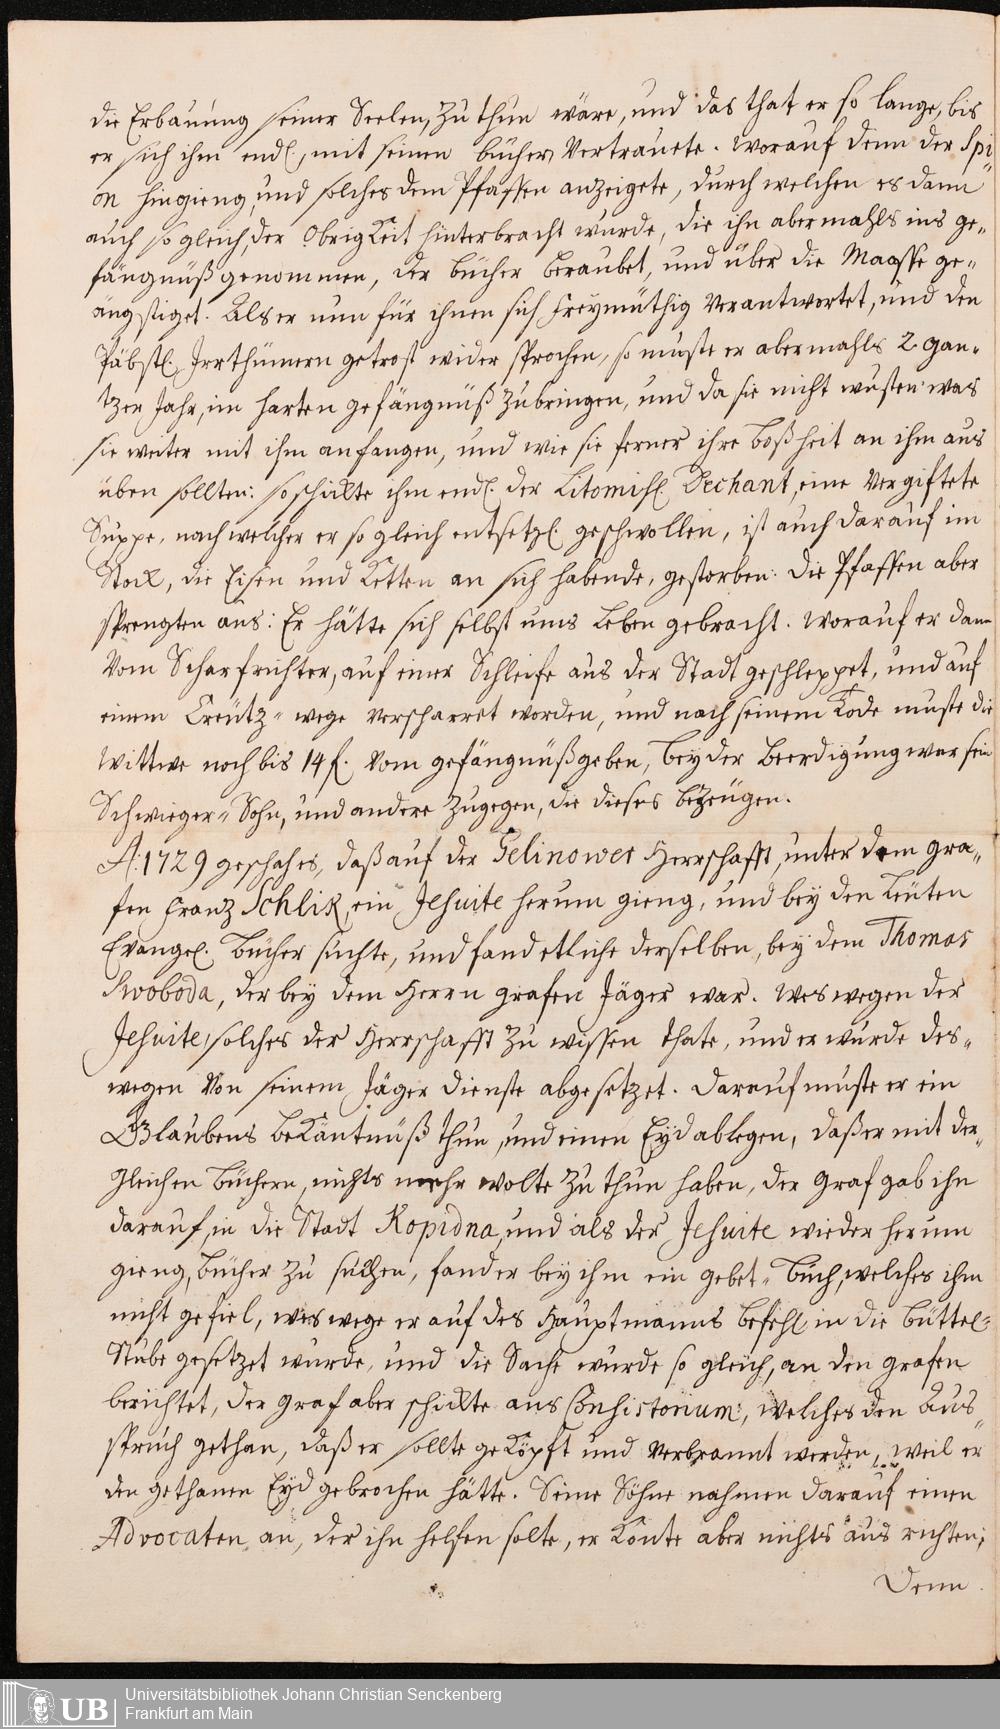 die Erbauung seiner Seelen, zu thun wäre, und das that er so lange, bis
er sich ihm endl., mit seinen büchern Vertrauete. Worauf denn der Spi„
on hingieng, und solches dem Pfaffen anzeigete, durch welchen es dann
auch so gleich, der Obrigkeit hinterbracht wurde, die ihn abermahls ins ge„
fängnüß genommen, der bücher beraubet, und über die Maasse ge„
ängstiget. Als er nun für ihnen sich freymüthig Verantwortet, und den
Päbstl. Irrthümern getrost wider sprochen, so muste er abermahls 2 gan„
tzer Jahr, im harten gefängnüß zubringen, und da sie nicht wusten was
sie weiter mit ihm anfangen, und wie sie ferner ihre boßheit an ihm aus
üben sollten: so schickte ihm endl. der Litomisl. Dechant, eine Vergiftete
Suppe, nach welcher er so gleich entsetzl. geschwollen, ist auch darauf im
Stock, die Eisen und Ketten an sich habende, gestorben. Die Pfaffen aber
sprengten aus: Er hätte sich selbst ums Leben gebracht. Worauf er dann
Vom Scharfrichter, auf einer Schleife aus der Stadt geschleppet, und auf
einem Creütz„wege verscharret worden, und nach seinem Tode muste die
Wittwe noch bis 14 f. Vom gefängnüß geben, bey der beerdigung war sein
Schwieger„Sohn, und andere zugegen, die dieses bezeügen.
A: 1729 geschah es, daß auf der Gelinower Herrschafft, unter dem Gra„
fen Franz Schlik, ein Jesuite herum gieng, und bey den Leüten
Evangel. bücher suchte, und fand etliche derselben, bey dem Thomas
Swoboda, der bey dem Herrn grafen Jäger war. Wes wegen der
Jesuite, solches der Herrschafft zu wissen thate, und er wurde des„
wegen von seinem Jäger dienste abgesetzet. Darauf muste er ein
Glaubens bekäntnüß thun, und einen Eyd ablegen, daß er mit der„
gleichen büchern, nichts mehr wolte zu thun haben, der graf gab ihn
darauf, in die Stadt Kopidna, und als der Jesuite wieder herum
gieng, bücher zu suchen, fand er bey ihm ein gebet„buch, welches ihm
nicht gefiel, weswege er auf des Hauptmanns befehl in die büttel„
Stube gesetzet wurde, und die Sache wurde so gleich, an den grafen
berichtet, der graf aber schickte ans Consistorium, welches den Aus„
spruch gethan, daß er sollte geköpft und verbrannt werden, weil er
den gethanen Eyd gebrochen hätte. Seine Söhne nahmen darauf einen
Advocaten an, der ihn helfen solte, er konte aber nichts aus richten;
Denn
UB Universitätsbibliothek Johann Christian Senckenberg
Frankfurt am Main